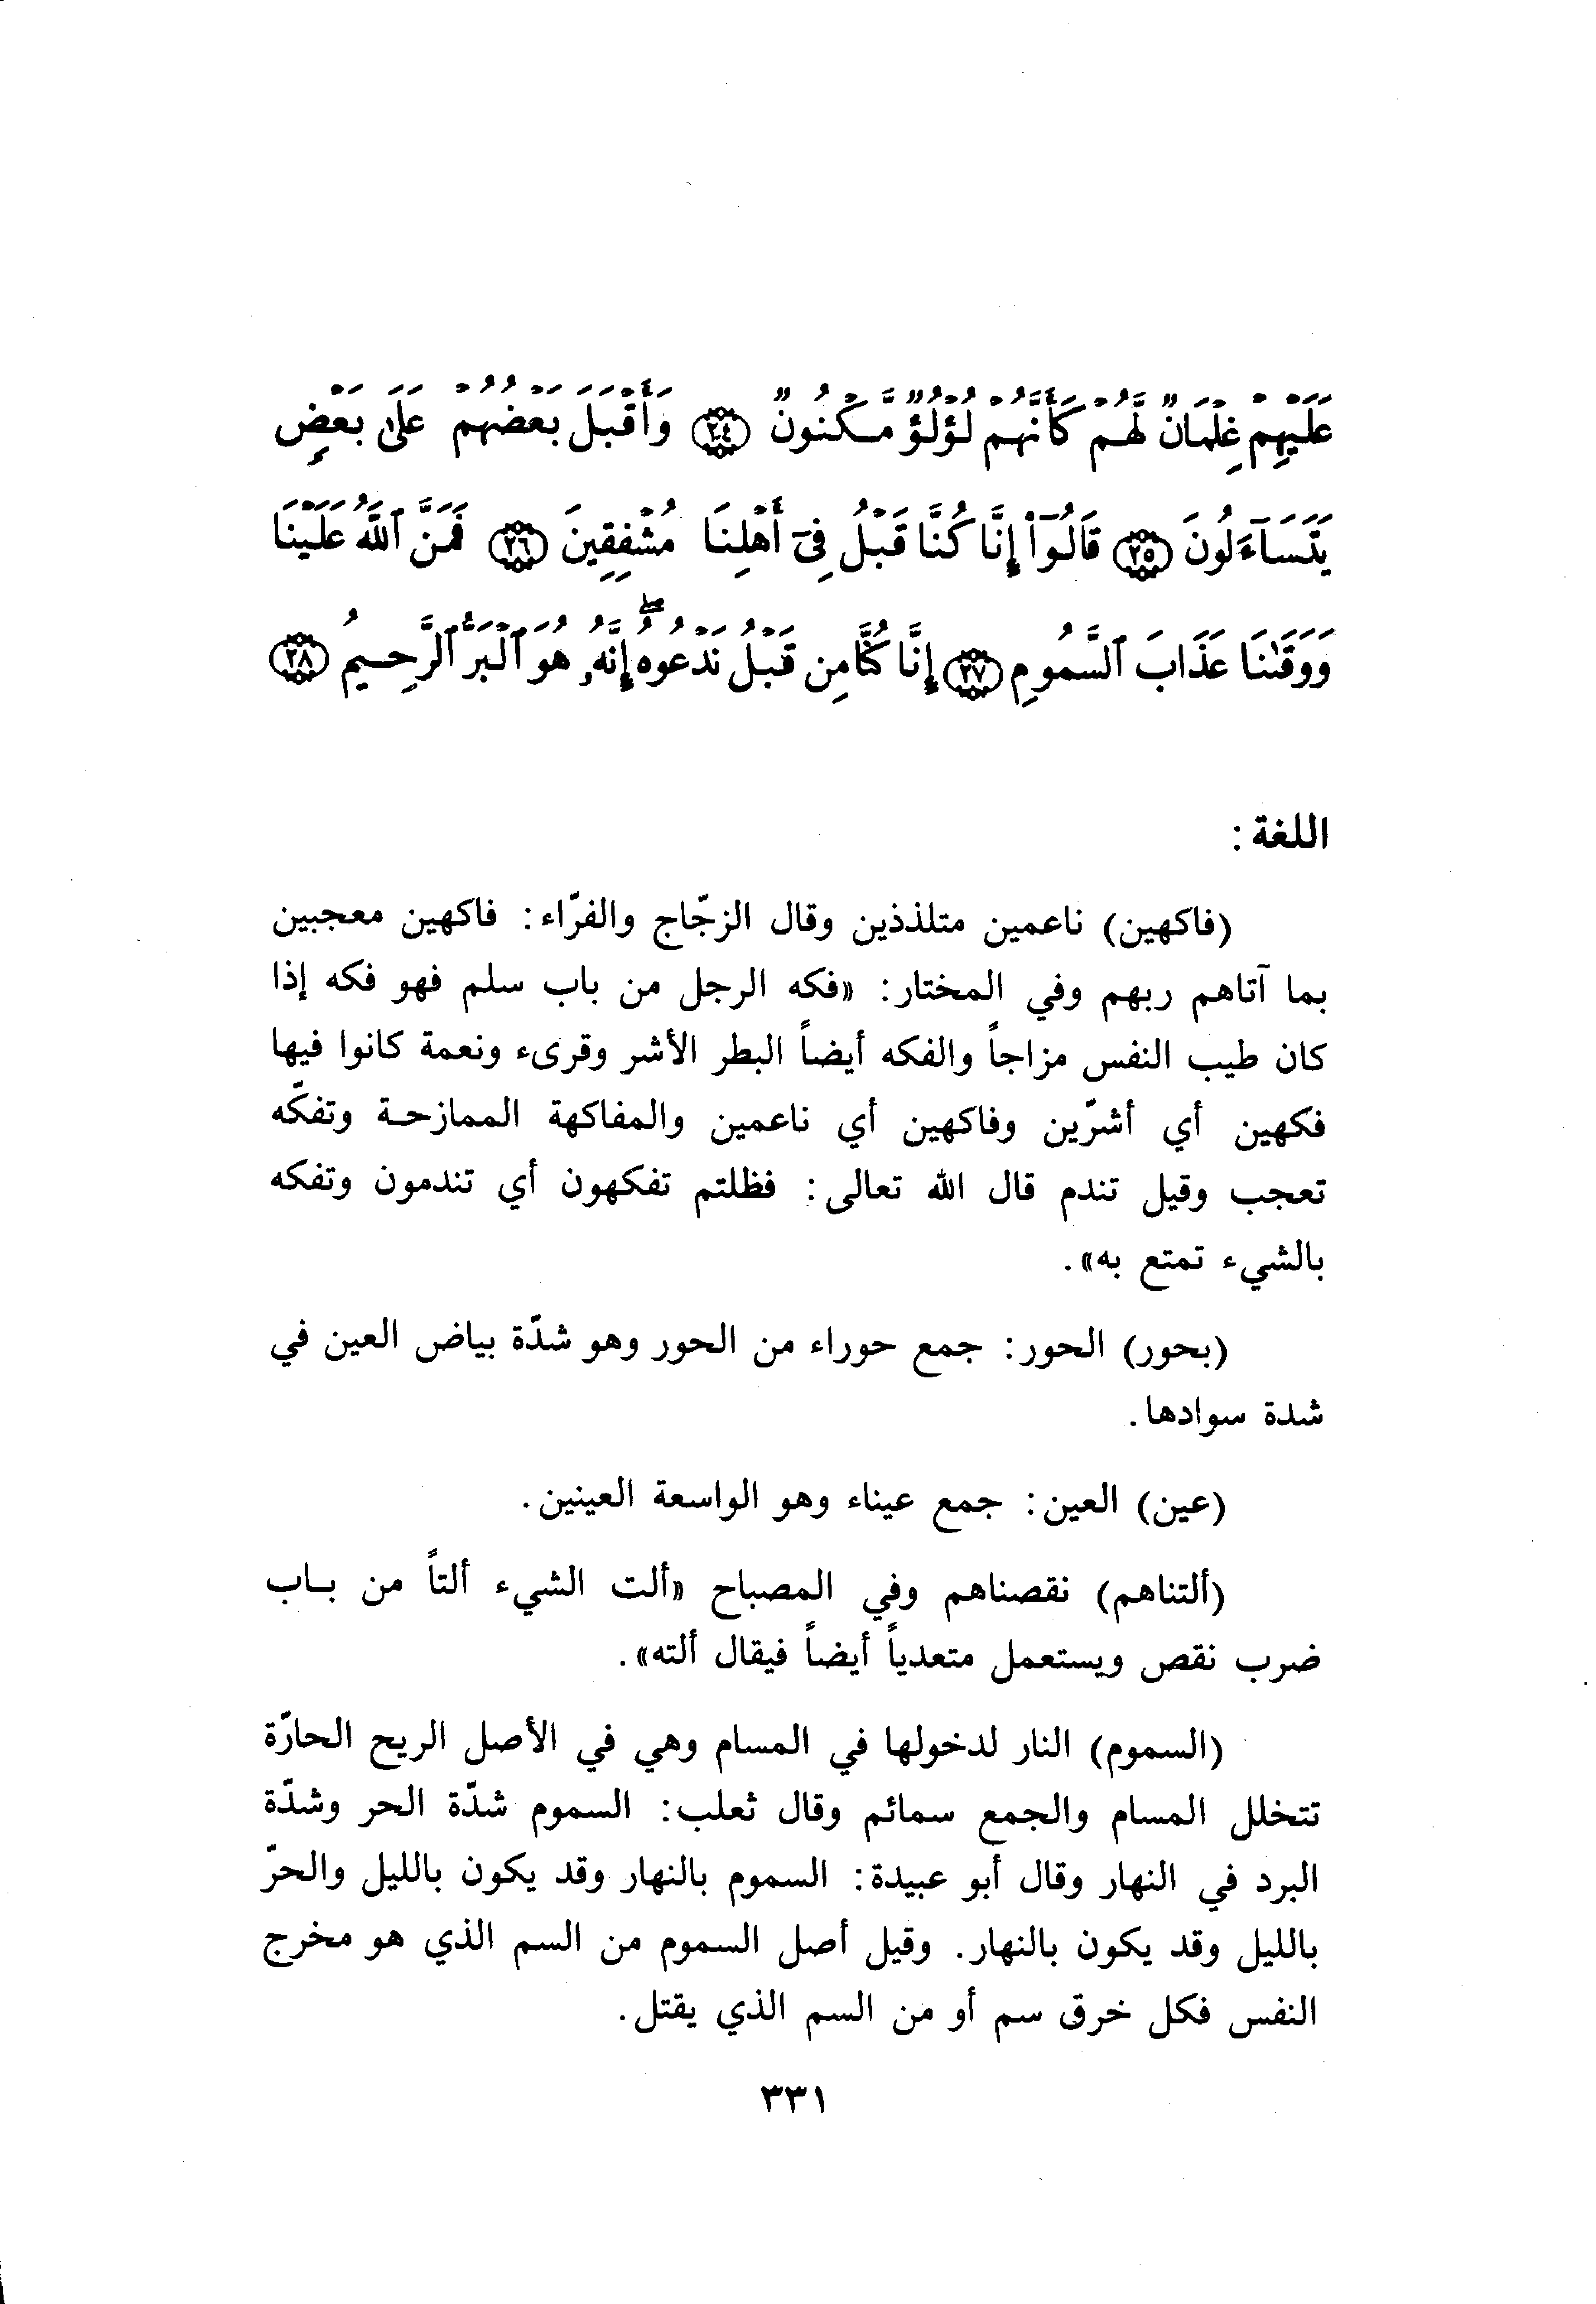 عَلَيْهِمْ غِلْمَانٌ لَّهُمْ كَأَنَّهُمْ لُؤْلُؤٌ مَّكْنُونٌ ﴿٢٤﴾ وَأَقْبَلَ بَعْضُهُمْ عَلَىٰ بَعْضٍ
يَتَسَآءَلُونَ ﴿٢٥﴾ قَالُوٓا۟ إِنَّا كُنَّا قَبْلُ فِىٓ أَهْلِنَا مُشْفِقِينَ ﴿٢٦﴾ فَمَنَّ ٱللَّهُ عَلَيْنَا
وَوَقَىٰنَا عَذَابَ ٱلسَّمُومِ ﴿٢٧﴾ إِنَّا كُنَّا مِن قَبْلُ نَدْعُوهُ ۖ إِنَّهُۥ هُوَ ٱلْبَرُّ ٱلرَّحِيمُ ﴿٢٨﴾
اللغة :
(فاكهين) ناعمين متلذذين وقال الزجّاج والفرّاء: فاكهين معجبين
بما آتاهم ربهم وفي المختار: «فكه الرجل من باب سلم فهو فكه إذا
كان طيب النفس مزاجاً والفكه أيضاً البطر الأشر وقرىء ونعمة كانوا فيها
فكهين أي أشرّين وفاكهين أي ناعمين والمفاكهة الممازحة وتفكّه
تعجب وقيل تندم قال الله تعالى: فظلتم تفكهون أي تندمون وتفكه
بالشيء تمتع به».
(بحور) الحور: جمع حوراء من الحور وهو شدّة بياض العين في
شدة سوادها.
(عين) العين: جمع عيناء وهو الواسعة العينين.
(ألتناهم) نقصناهم وفي المصباح «ألت الشيء ألتاً من باب
ضرب نقص ويستعمل متعدياً أيضاً فيقال ألته».
(السموم) النار لدخولها في المسام وهي في الأصل الريح الحارّة
تتخلل المسام والجمع سمائم وقال ثعلب: السموم شدّة الحر وشدّة
البرد في النهار وقال أبو عبيدة: السموم بالنهار وقد يكون بالليل والحرّ
بالليل وقد يكون بالنهار. وقيل أصل السموم من السم الذي هو مخرج
النفس فكل خرق سم أو من السم الذي يقتل.
٣٣١